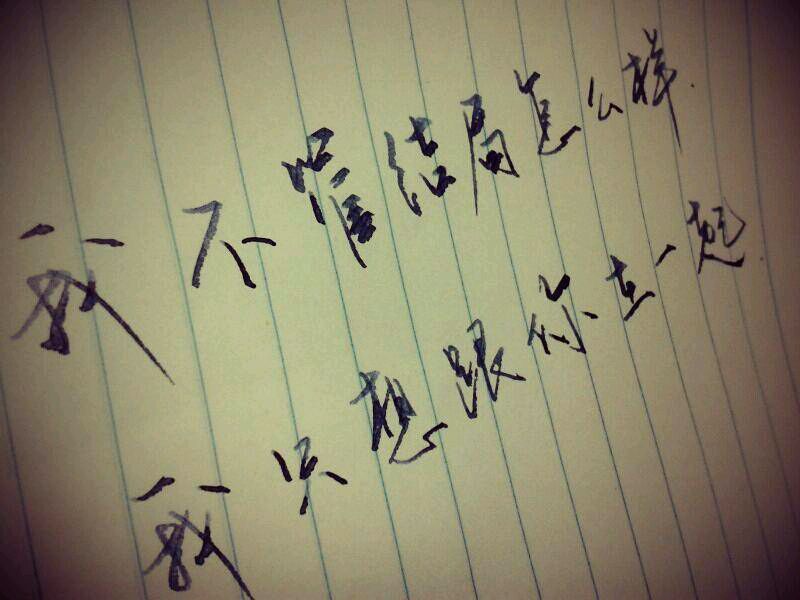 我不管结局怎么样
我只想跟你在一起